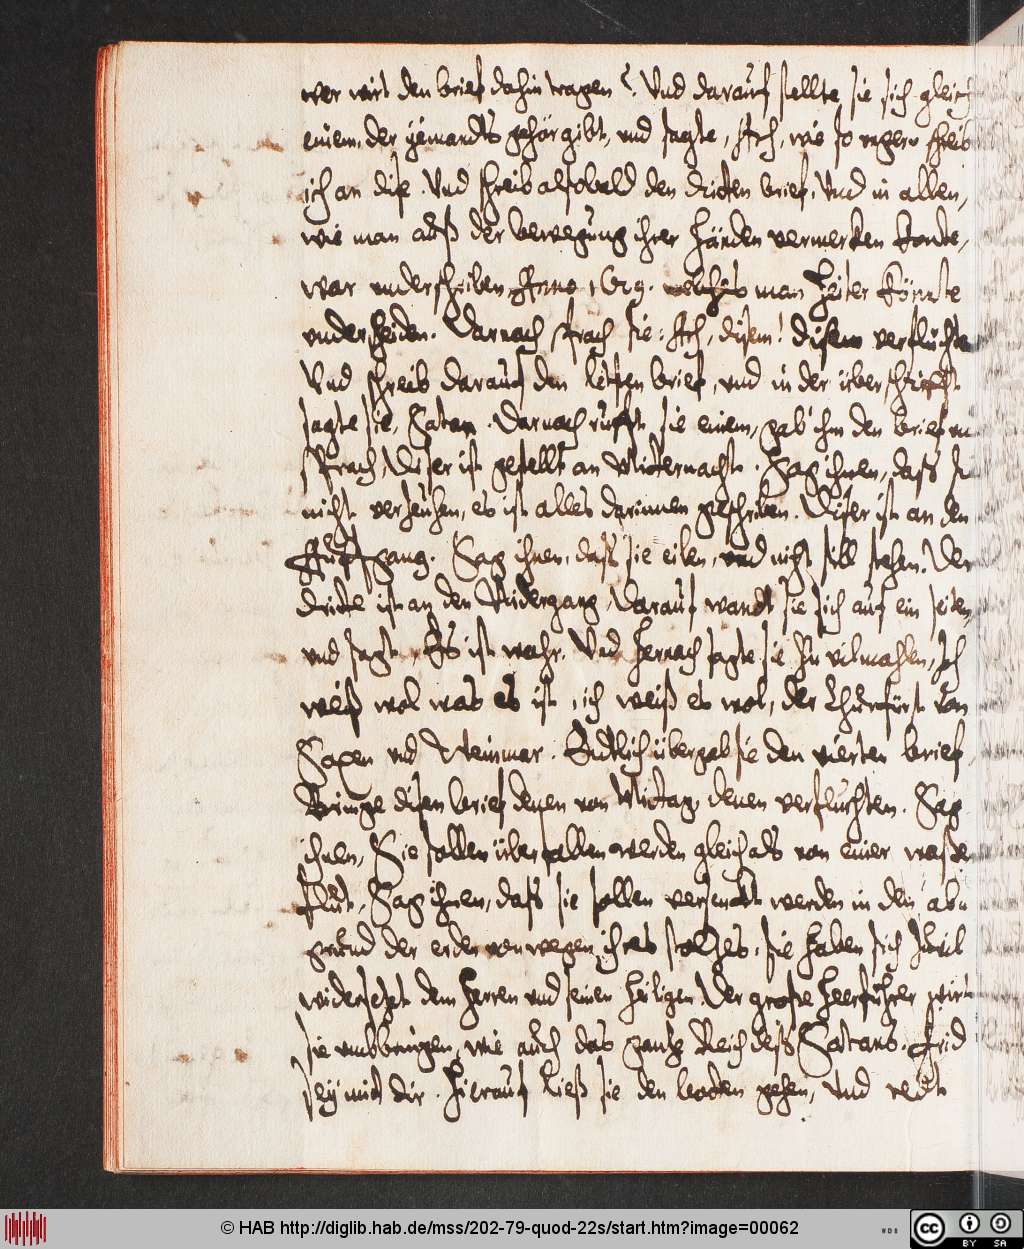 wer wirt den brief dahin tragen? Vnd darauf stellte sie sich gleich
einem, der yemandts gehör gibt, vnd sagte, Ach, wie so vngern schreib
ich an dise. Vnd schreib alsobald den dritten brief, Vnd in allen,
wie man auß der bewegung ihrer händen vermerken konte,
war vnderschriben Anno 1629. welches man heiter könnte
vnderscheiden. Darnach sprach sie: Ach, disem! disem verfluchten
Vnd schreib darauf den letsten brief, vnd in der überschrifft
sagte sie, Satan. Darnach rufft sie einem, gab ihm den brief vn
sprach, Diser ist gestellt an Mitternacht. Sag ihnen, daß sie
nicht verzeuhen, es ist alles darinnen geschriben. Diser ist an den
Auffgang. Sag ihnen, daß sie eilen, vnd nicht still stehen. Der
dritte ist an den Nidergang, Darauf wandt sie sich auf ein seiten,
vnd sagt, Es ist wahr. Vnd hernach sagte sie zu vilmahlen, Ich
weiß wol was es ist, ich weiß es wol, der Churfürst von
Saxen vnd Weinmar. Endtlich übergab sie den vierten brief,
Bringe disen brief denen von Mittag, denen verfluchten. Sag
ihnen, Sie sollen überfallen werden gleich als von einer wasser
flut, Sag ihnen, daß sie sollen versenckt werden in den ab-
grund der erden von wegen ihres stoltzes, sie haben sich zuvil
widersetzt dem Herren vnd seinen heiligen. Der große Heerführer wirt
sie vmbbringen, wie auch das gantz Reich deß Satans. Frid
sey mit dir. Hierauf ließ sie den botten gehen, Vnd redt
© HAB http://diglib.hab.de/mss/202-79-quod-22s/start.htm?image=00062
WDB
cc BY SA